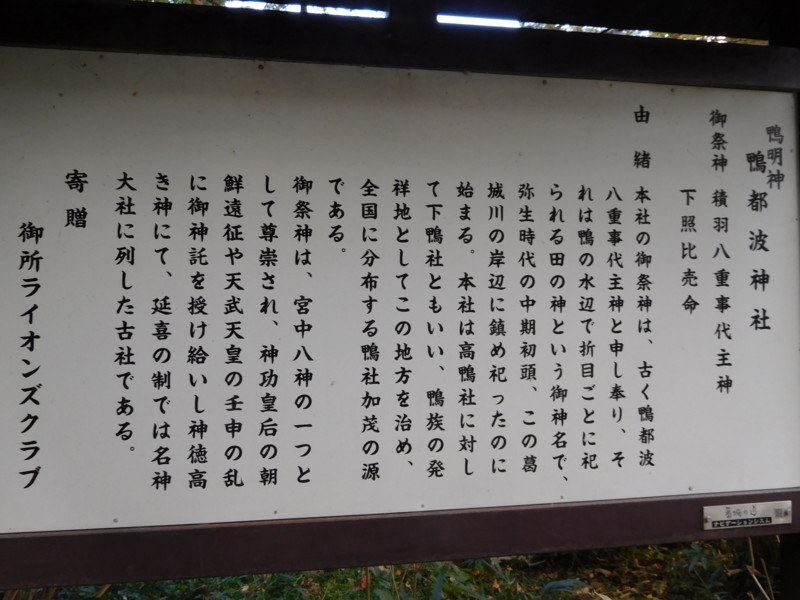 鴨明神
鴨都波神社
御祭神 積羽八重事代主神
下照比売命
由緒 本社の御祭神は、古く鴨都波
八重事代主神と申し奉り、そ
れは鴨の水辺で折目ごとに祀
られる田の神という御神名で、
弥生時代の中期初頭、この葛
城川の岸辺に鎮め祀ったのに
始まる。本社は高鴨社に対し
て下鴨社ともいい、鴨族の発
祥地としてこの地方を治め、
全国に分布する鴨社加茂の源
である。
御祭神は、宮中八神の一つと
して尊崇され、神功皇后の朝
鮮遠征や天武天皇の壬申の乱
に御神託を授け給いし神徳高
き神にて、延喜の制では名神
大社に列した古社である。
寄贈
御所ライオンズクラブ
葛城の道
ナビゲーションシステム